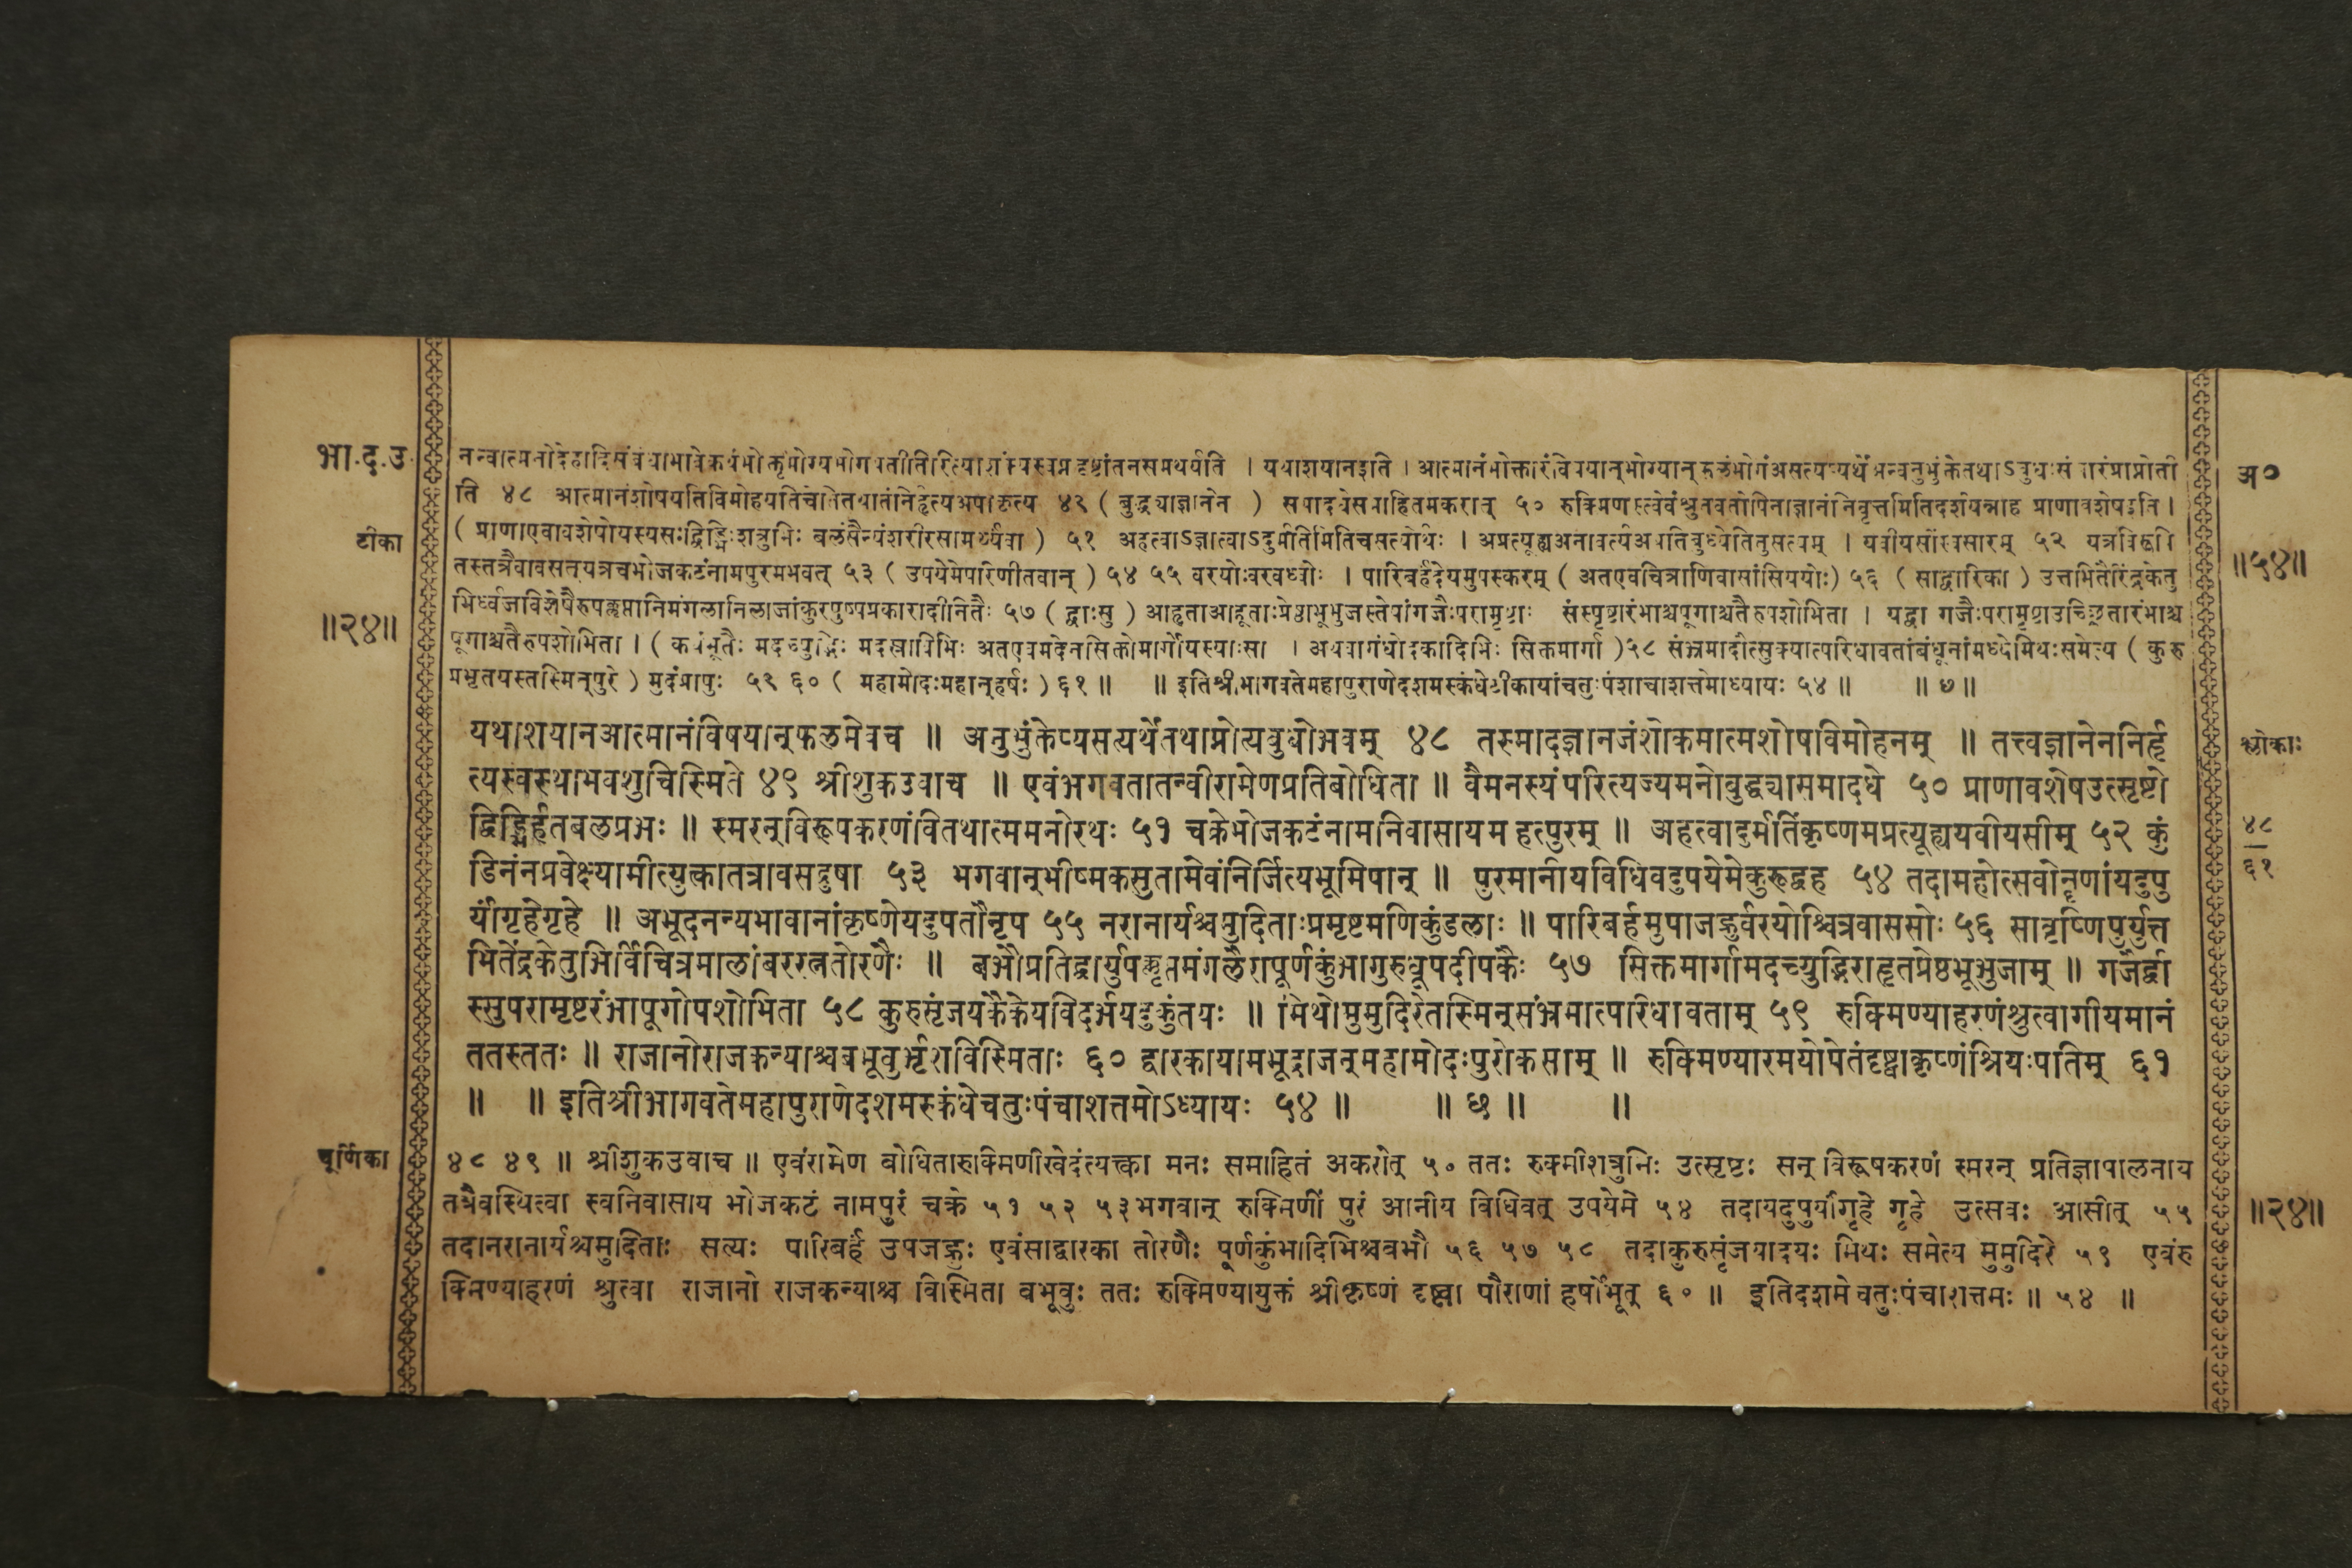 भा.द.उ. नन्वात्मनोदेहादिसंबंधाभावेकथंभोक्तृभोग्यभोगप्रतीतिरित्याशंक्यस्वप्नदृष्टांतेनसमर्थयति । यथाशयानइति । आत्मानंभोक्तारंविषयान्भोग्यान्फलंभोगंअसत्यप्यर्थेअन्वनुभुंक्तेतथाऽबुधःसंसारंप्राप्नोती अ०
ति ४८ आत्मानंशोषयतिविमोहयतिचेतितथातंनिर्हृत्यअपाकृत्य ४९ ( बुद्ध्याज्ञानेन ) समादधेसमाहितमकरोत् ५० रुक्मिणस्त्वेवंश्रुतवतोपिनाज्ञानंनिवृत्तमितिदर्शयन्नाह प्राणावशेषइति ।
टीका ( प्राणाएवावशेषोयस्यसःद्विड्भिःशत्रुभिः बलंसैन्यंशरीरसामर्थ्यंवा ) ५१ अहत्वाऽज्ञात्वाऽदुर्मतिमितिचसत्योर्थः । अप्रत्यूह्यअनावर्त्यअप्रतिबुध्येतितुसत्यम् । यवीयसींस्वसारम् ५२ यत्र
तस्तत्रैवावसत्यत्रचभोजकटंनामपुरमभवत् ५३ ( उपयेमेपरिणीतवान् ) ५४ ५५ वरयोःवरवध्वोः । पारिबर्हंदेयमुपस्करम् ( अतएवचित्राणिवासांसिययोः) ५६ ( साद्वारिका ) उत्तभितैरिंद्रकेतु ॥५४॥
भिर्ध्वजविशेषैरुपक्लृप्तानिमंगलानिलाजांकुरपुष्पप्रकारादीनितैः ५७ ( द्वाःसु ) आहृताआहूताःप्रेष्ठाभूभुजस्तेषांगजैःपरामृष्टाः संस्पृष्टारंभाश्चपूगाश्चतैरुपशोभिता । यद्वा गजैःपरामृष्टाउच्छ्रितारंभाश्च
॥२४॥ पूगाश्चतैरुपशोभिता । ( कथंभूतैः मदच्युद्भिः मदस्राविभिः अतएवमदेनसिक्तोमार्गोयस्याःसा । अथवागंधोदकादिभिः सिक्तमार्गा )५८ संभ्रमादौत्सुक्यात्परिधावतांबंधूनांमध्येमिथःसमेत्य ( कुरु
प्रभृतयस्तस्मिन्पुरे ) मुदंप्रापुः ५९ ६० ( महामोदःमहान्हर्षः ) ६१ ॥ ॥ इतिश्रीभागवतेमहापुराणेदशमस्कंधेटीकायांचतुःपंशाचाशत्तमोध्यायः ५४ ॥ ॥ ७ ॥
यथाशयानआत्मानंविषयान्फलमेवच ॥ अनुभुंक्तेप्यसत्यर्थेतथाप्नोत्यबुधोभवम् ४८ तस्मादज्ञानजंशोकमात्मशोषविमोहनम् ॥ तत्त्वज्ञानेननिर्हृ श्लोकाः
त्यस्वस्थाभवशुचिस्मिते ४९ श्रीशुकउवाच ॥ एवंभगवतातन्वीरामेणप्रतिबोधिता ॥ वैमनस्यंपरित्यज्यमनोबुद्ध्यासमादधे ५० प्राणावशेषउत्सृष्टो
द्विड्भिर्हतबलप्रभः ॥ स्मरन्विरूपकरणंवितथात्ममनोरथः ५१ चक्रेभोजकटंनामनिवासायमहत्पुरम् ॥ अहत्वादुर्मतिंकृष्णमप्रत्यूह्ययवीयसीम् ५२ कुं ४८
डिनंनप्रवेक्ष्यामीत्युक्त्वातत्रावसद्रुषा ५३ भगवान्भीष्मकसुतामेवंनिर्जित्यभूमिपान् ॥ पुरमानीयविधिवदुपयेमेकुरूद्वह ५४ तदामहोत्सवोनॄणांयदुपु ६१
र्यांगृहेगृहे ॥ अभूदनन्यभावानांकृष्णेयदुपतौनृप ५५ नरानार्यश्चमुदिताःप्रमृष्टमणिकुंडलाः ॥ पारिबर्हमुपाजह्रुर्वरयोश्चित्रवाससोः ५६ सावृष्णिपुर्युत्त
भितेंद्रकेतुभिर्विचित्रमाल्यांबररत्नतोरणैः ॥ बभौप्रतिद्वार्युपक्लृप्तमंगलैरापूर्णकुंभागुरुधूपदीपकैः ५७ सिक्तमार्गामदच्युद्भिराहृतप्रेष्ठभूभुजाम् ॥ गजैर्द्वा
स्सुपरामृष्टरंभापूगोपशोभिता ५८ कुरुसृंजयकैकेयविदर्भयदुकुंतयः ॥ मिथोमुमुदिरेतस्मिन्संभ्रमात्परिधावताम् ५९ रुक्मिण्याहरणंश्रुत्वागीयमानं
ततस्ततः ॥ राजानोराजकन्याश्चबभूवुर्भृशविस्मिताः ६० द्वारकायामभूद्राजन्महामोदःपुरोकसाम् ॥ रुक्मिण्यारमयोपेतंदृष्ट्वाकृष्णंश्रियःपतिम् ६१
॥ ॥ इतिश्रीभागवतेमहापुराणेदशमस्कंधेचतुःपंचाशत्तमोऽध्यायः ५४ ॥ ॥ छ ॥ ॥
चूर्णिका ४८ ४९ ॥ श्रीशुकउवाच ॥ एवंरामेण बोधितारुक्मिणीखेदंत्यक्त्वा मनः समाहितं अकरोत् ५० ततः रुक्मीशत्रुभिः उत्सृष्टः सन् विरूपकरणं स्मरन् प्रतिज्ञापालनाय
तत्रैवस्थित्वा स्वनिवासाय भोजकटं नामपुरं चक्रे ५१ ५२ ५३ भगवान् रुक्मिणीं पुरं आनीय विधिवत् उपयेमे ५४ तदायदुपुर्यांगृहे गृहे उत्सवः आसीत् ५५ ॥२४॥
तदानरानार्यश्चमुदिताः सत्यः पारिबर्हं उपजह्रुः एवंसाद्वारका तोरणैः पूर्णकुंभादिभिश्चबभौ ५६ ५७ ५८ तदाकुरुसृंजयादयः मिथः समेत्य मुमुदिरे ५९ एवंरु
क्मिण्याहरणं श्रुत्वा राजानो राजकन्याश्च विस्मिता बभूवुः ततः रुक्मिण्यायुक्तं श्रीकृष्णं दृष्ट्वा पौराणां हर्षोभूत् ६० ॥ इतिदशमे चतुःपंचाशत्तमः ॥ ५४ ॥